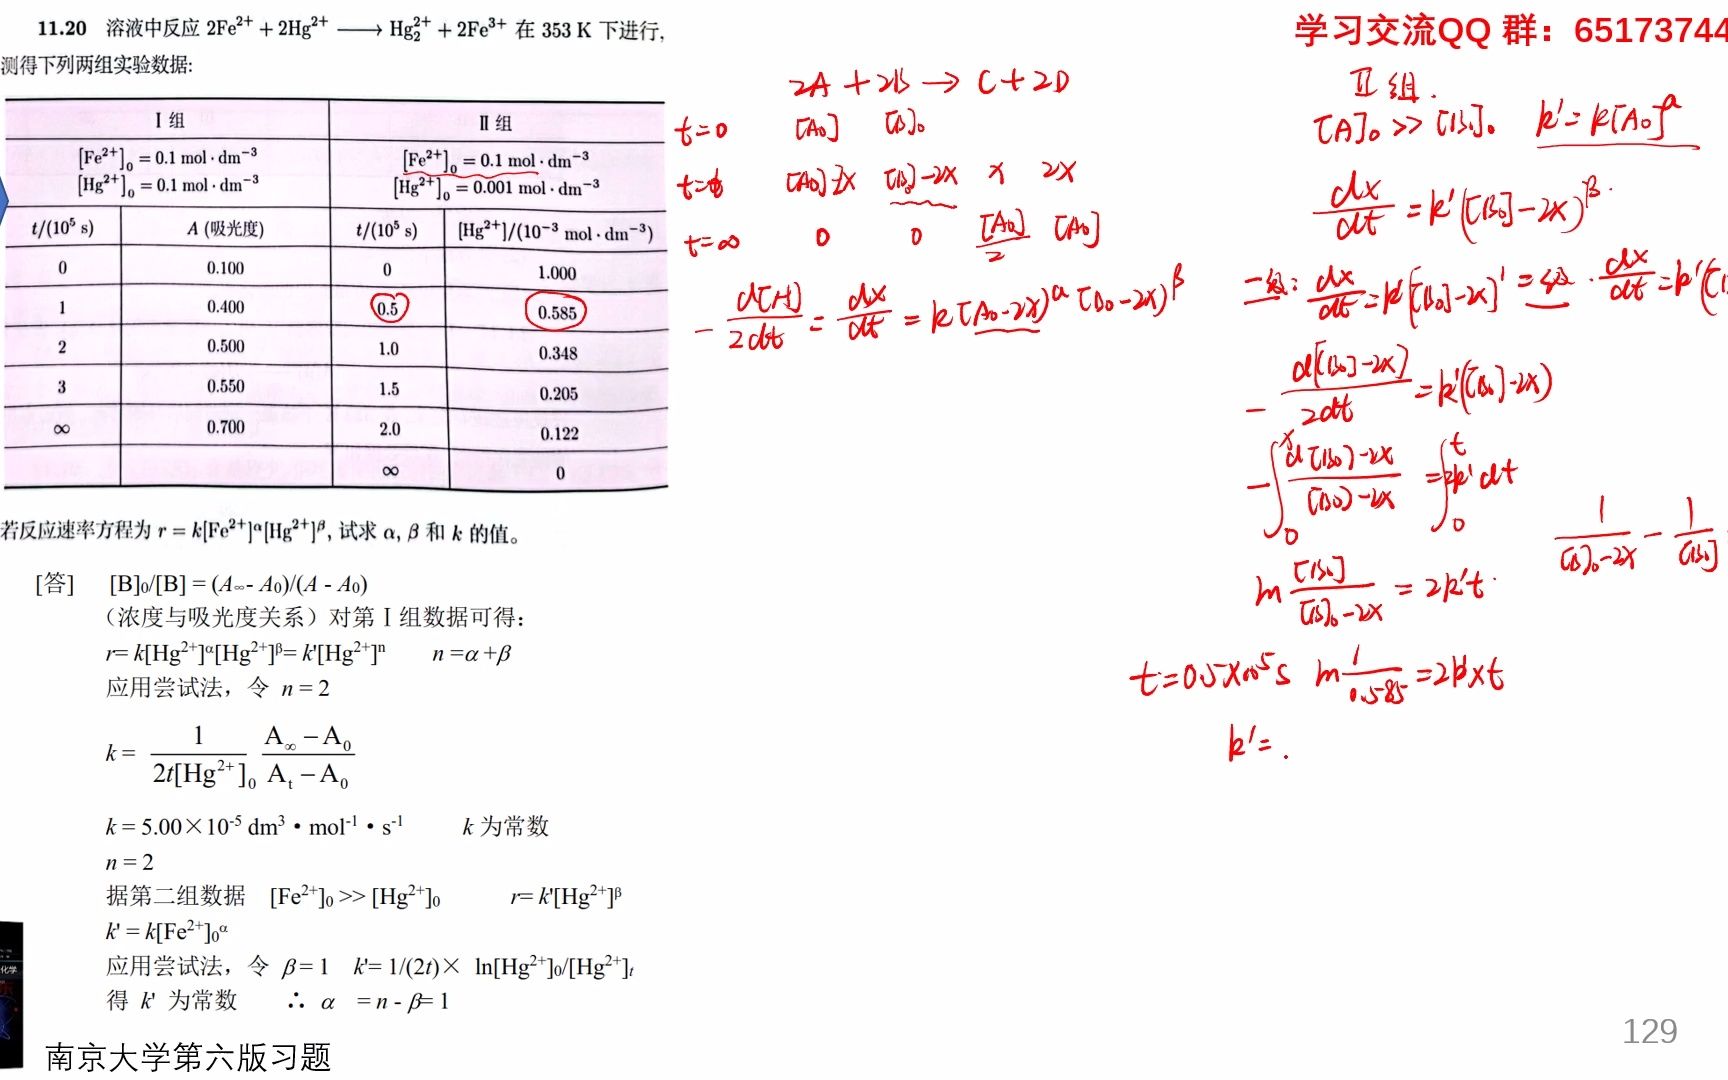 11.20 溶液中反应 2Fe²⁺ + 2Hg²⁺ ⟶ Hg₂²⁺ + 2Fe³⁺ 在 353 K 下进行,
测得下列两组实验数据:
I 组 II 组
[Fe²⁺]₀ = 0.1 mol·dm⁻³ [Fe²⁺]₀ = 0.1 mol·dm⁻³
[Hg²⁺]₀ = 0.1 mol·dm⁻³ [Hg²⁺]₀ = 0.001 mol·dm⁻³
t/(10⁵ s) A (吸光度) t/(10⁵ s) [Hg²⁺]/(10⁻³ mol·dm⁻³)
0 0.100 0 1.000
1 0.400 0.5 0.585
2 0.500 1.0 0.348
3 0.550 1.5 0.205
∞ 0.700 2.0 0.122
∞ 0
若反应速率方程为 r = k[Fe²⁺]^α[Hg²⁺]^β, 试求 α, β 和 k 的值。
[答] [B]₀/[B] = (A∞- A₀)/(A - A₀)
（浓度与吸光度关系）对第 I 组数据可得：
r= k[Hg²⁺]^α[Hg²⁺]^β= k'[Hg²⁺]ⁿ n =α +β
应用尝试法，令 n = 2
k = 1/(2t[Hg²⁺]₀) (A∞ − A₀)/(Aₜ − A₀)
k = 5.00×10⁻⁵ dm³•mol⁻¹•s⁻¹ k 为常数
n = 2
据第二组数据 [Fe²⁺]₀ >> [Hg²⁺]₀ r= k'[Hg²⁺]^β
k' = k[Fe²⁺]₀^α
应用尝试法，令 β = 1 k'= 1/(2t)× ln[Hg²⁺]₀/[Hg²⁺]ₜ
得 k' 为常数 ∴ α = n - β= 1
南京大学第六版习题
化学
2A + 2B → C + 2D
t=0 [A₀] [B]₀
t=t [A₀]-2x [B]₀-2x x 2x
t=∞ 0 0 [A₀]/2 [A₀]
- d[A]/2dt = dx/dt = k[A₀-2x]^α [B₀-2x)^β
学习交流QQ 群：65173744
II 组.
[A]₀ >> [B]₀. k' = k[A₀]^α
dx/dt = k'([B₀]-2x)^β.
一级: dx/dt = k'[[B₀]-2x]¹ 二级. dx/dt = k'([
- d([B₀]-2x)/2dt = k'([B₀]-2x)
- ∫₀ˣ d[B₀]-2x/[B₀]-2x = ∫₀ᵗ 2k'dt
ln [B₀]/[B]₀-2x = 2k't. 1/[B]₀-2x - 1/[B₀]
t=0.5×10⁵s ln 1/0.585 = 2k'×t
k' = .
129